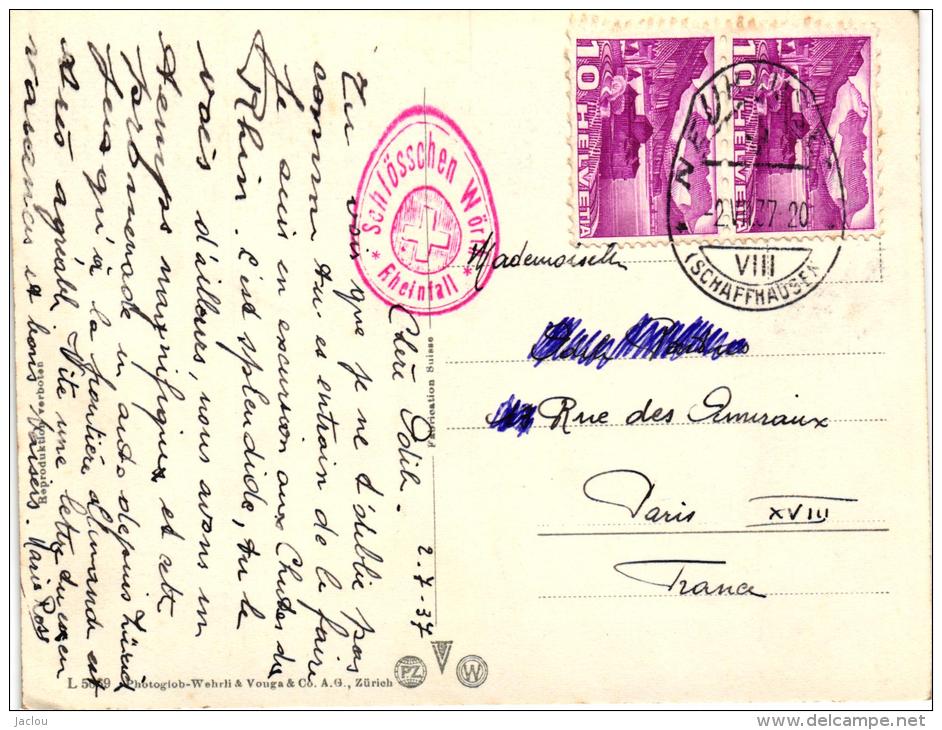 Chère Odile. 2.7-37
Tu vois que je ne t'oublie pas
comm tu es entrain de le faire
Je suis en excursion aux Chutes du
Rhin. C'est splendide, tu le
vois d'ailleurs, nous avons un
temps magnifique et cette
promenade en auto depuis Zürich
jusqu'à la frontière allemande est
très agréable Vite une lettre du
et bons baisers. Marie Rose
Schlösschen Wörth
* Rheinfall *
10 HELVETIA
10 HELVETIA
NEUHAUSEN
-2.VII.37-20
VIII
(SCHAFFHAUSEN)
Mademoiselle
Rue des Amiraux
Paris XVIII
France
Fabrication Suisse
Reproduktion verboten
Photoglob-Wehrli & Vouga & Co. A.G., Zürich
PZ
V
W
Jaclou
http://www.delcampe.net